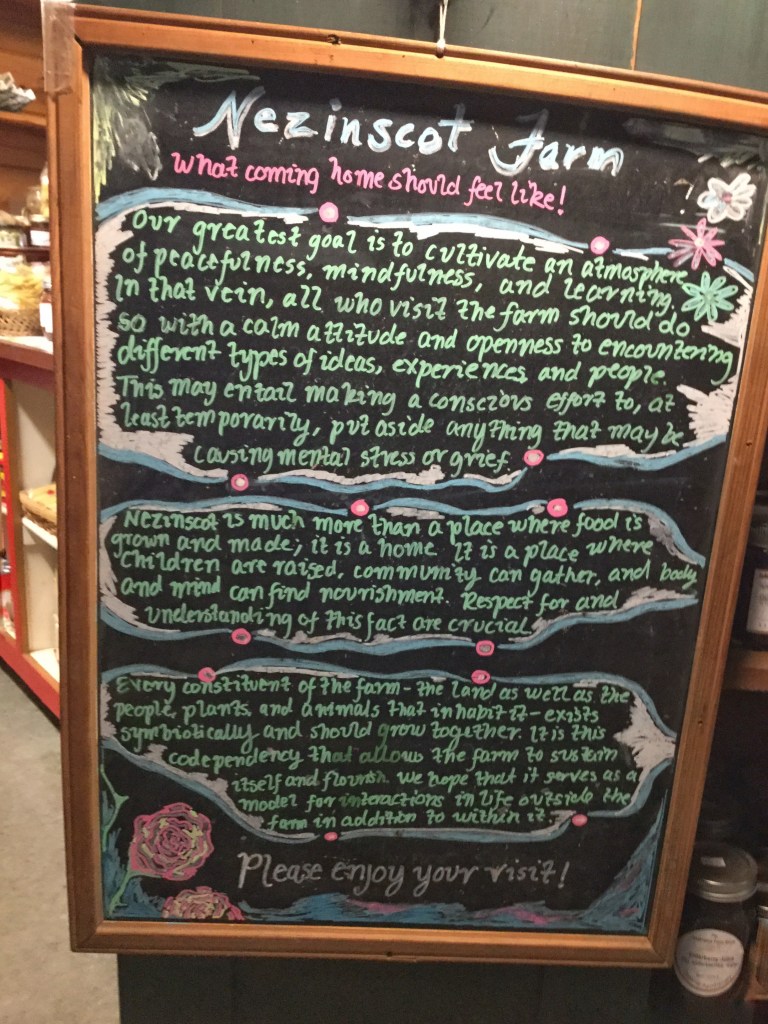 Nezinscot Farm
What coming home should feel like!
Our greatest goal is to cultivate an atmosphere
of peacefulness, mindfulness, and learning.
In that vein, all who visit the farm should do
so with a calm attitude and openness to encountering
different types of ideas, experiences, and people.
This may entail making a conscious effort to, at
least temporarily, put aside anything that may be
causing mental stress or grief.
Nezinscot is much more than a place where food is
grown and made; it is a home. It is a place where
children are raised, community can gather, and body
and mind can find nourishment. Respect for and
understanding of this fact are crucial.
Every constituent of the farm - the land as well as the
people, plants, and animals that inhabit it - exists
symbiotically and should grow together. It is this
codependency that allows the farm to sustain
itself and flourish. We hope that it serves as a
model for interactions in life outside the
farm in addition to within it.
Please enjoy your visit!